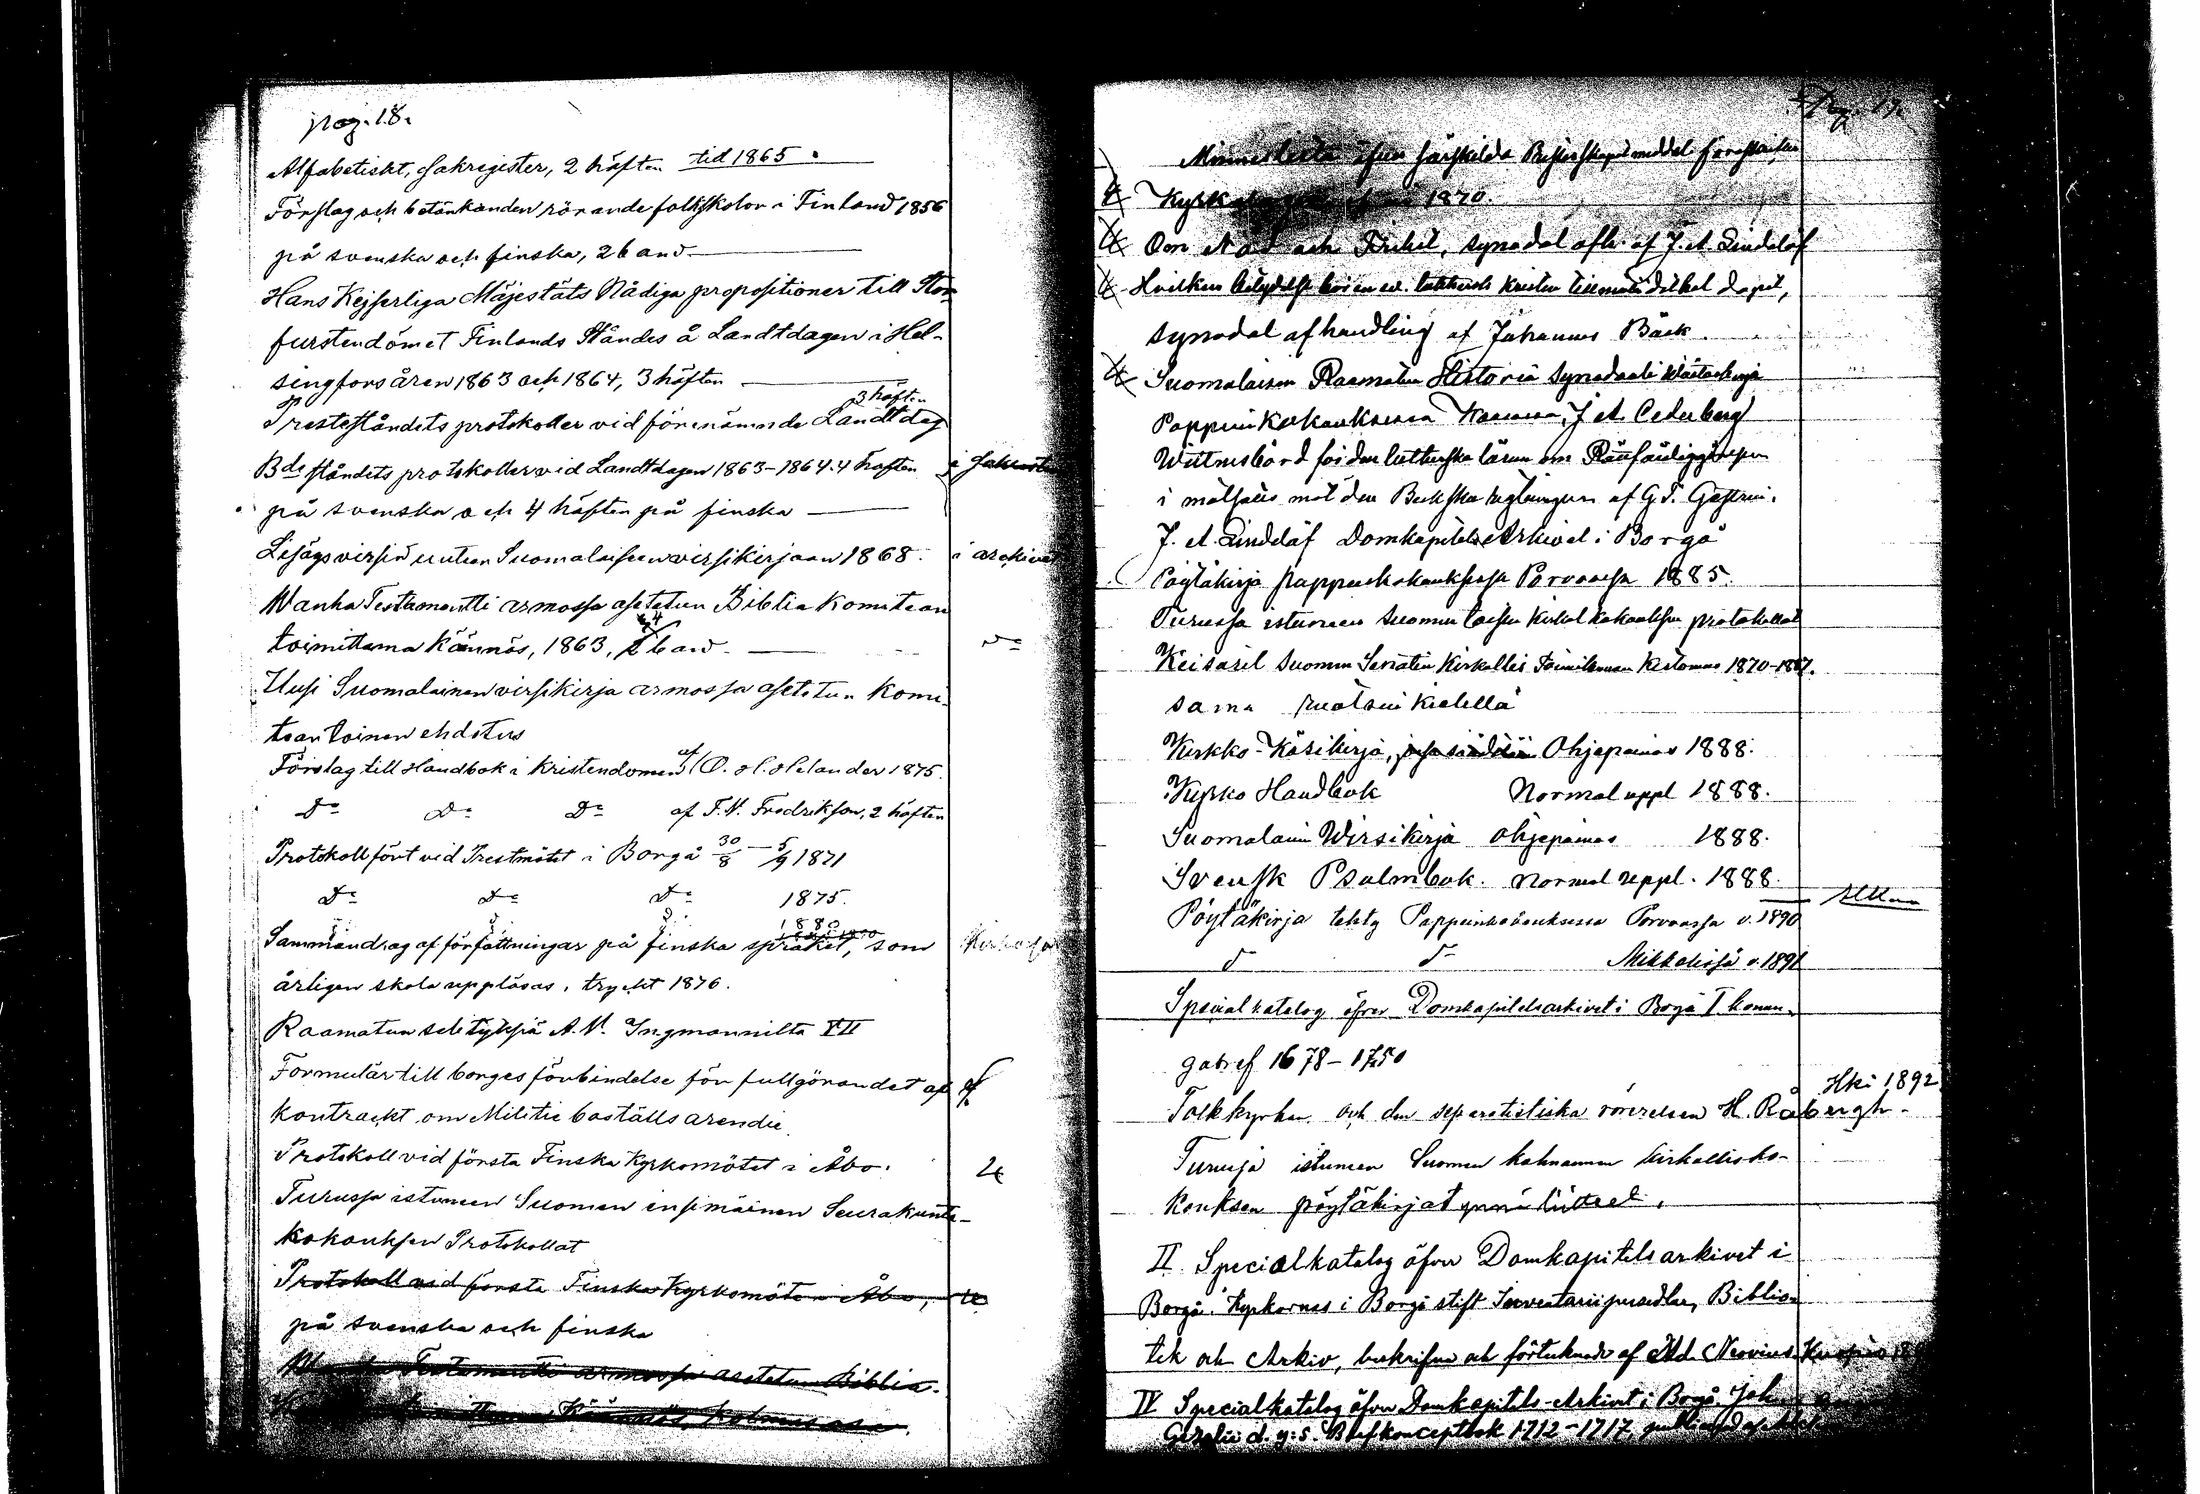 pag. 18.
Alfabetiskt, sakregister, 2 häften tid 1865.
Förslag och betänkanden rörande folkskolor i Finland 1856
på svenska och finska, 2 band
Hans Kejserliga Majestäts Nådiga propositioner till Stor
furstendömet Finlands Ständer å Landtdagen i Hel-
singfors åren 1863 och 1864, 3 häften
Presteståndets protokoller vid förenämnde Landtdag 3 häften
Bde ståndets protokoller vid Landtdagen 1863-1864. 4 häften
på svenska och 4 häften på finska
Lisäys virsiä uuteen Suomalaiseen virsikirjaan 1868. i archivet
Wanha Testamentti armossa asetetun Biblia Komitean
toimittama Käännös, 1863, 4 band. do
Uusi Suomalainen virsikirja armossa asetetun Komi-
tean toinen ehdotus
Förslag till Handbok i Kristendomen af O. H. Helander 1875.
Do Do Do af F. N. Fredrikson, 2 häften
Protokoll fört vid Prestmötet i Borgå 30/8 - 5/9 1871
Do Do Do 1875.
1880
Sammandrag af författningar på finska språket, som
årligen skola uppläsas, tryckt 1876.
Raamatun selityksiä A. W. Ingmannilta
Formulär till borgesförbindelse för fullgörandet af
kontrackt om Militie boställs arende
Protokoll vid första Finska Kyrkomötet i Åbo.
Turussa istuneen Suomen ensimäinen Seurakunta-
kokouksen Protokollat
Protokoll vid första Finska Kyrkomötet i Åbo,
på svenska och finska
Testamentti armossa asetetun Biblia.
Käännös, Kolmas osa.
Pag. 19.
Minneslista öfver särskilda
1870.
Om Nåd och Frihet, synodal afh. af J. A. Lindelöf
synodal afhandling af Johannes Bäck.
Suomalaisen Raamatun Historia synodaali Wäitöskirja
Pappein Kokouksessa, J. A. Cederberg
Wittnesbörd för den lutherska läran om Rättfärdiggörelsen
i motsats mot den Beckska af G. T.
J. A. Lindelöf Domkapitels Arkivet i Borgå
Pöytäkirja pappeinkokouksessa Porvoossa 1885.
Turussa istuneen Suomen toisen Kirkolliskokouksen protokollat
Keisaril Suomen Senatin Kirkollis Toimikunnan Kertomus 1870-1887.
sama ruotsin kielellä
Kirkko-Käsikirja, Ohjepainos 1888.
Kyrko Handbok Normal uppl 1888.
Suomalain Wirsikirja Ohjepainos 1888.
Svensk Psalmbok. Normal uppl. 1888.
Pöytäkirja tehty Pappeinkokouksessa Porvoossa v. 1890
Mikkelissä v. 1891
Specialkatalog öfver Domkapitelsarkivet i Borgå I konun-
gabref 1678-1750
Folkkyrkan och den separatistiska rörelsen H. Råbergh. Hki 1892
Turussa istuneen Suomen kolmannen kirkollisko-
kouksen pöytäkirjat ynnä liitteet.
II Specialkatalog öfver Domkapitels arkivet i
Borgå. Kyrkornas i Borgå stift Inventariipersedlar, Biblio-
tek och Arkiv, beskrifna och förtecknade af Ad. Neovius. Kuopio
IV Specialkatalog öfver Domkapitels-Arkivet i Borgå. Joh.
Gezelii d. y:s. Brefkonceptbok 1712-1717